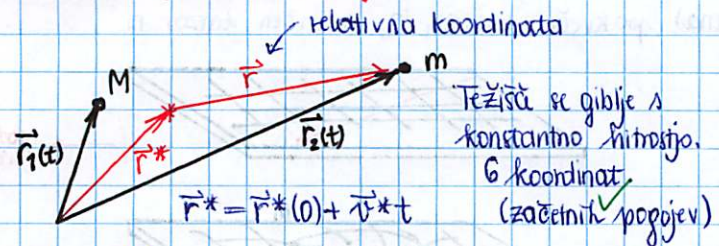 relativna koordinata
M
r⃗
m
r⃗₁(t)
r⃗*
r⃗₂(t)
Težišče se giblje s
konstantno hitrostjo.
6 koordinat
(začetnih pogojev)
r⃗* = r⃗*(0) + v⃗* t